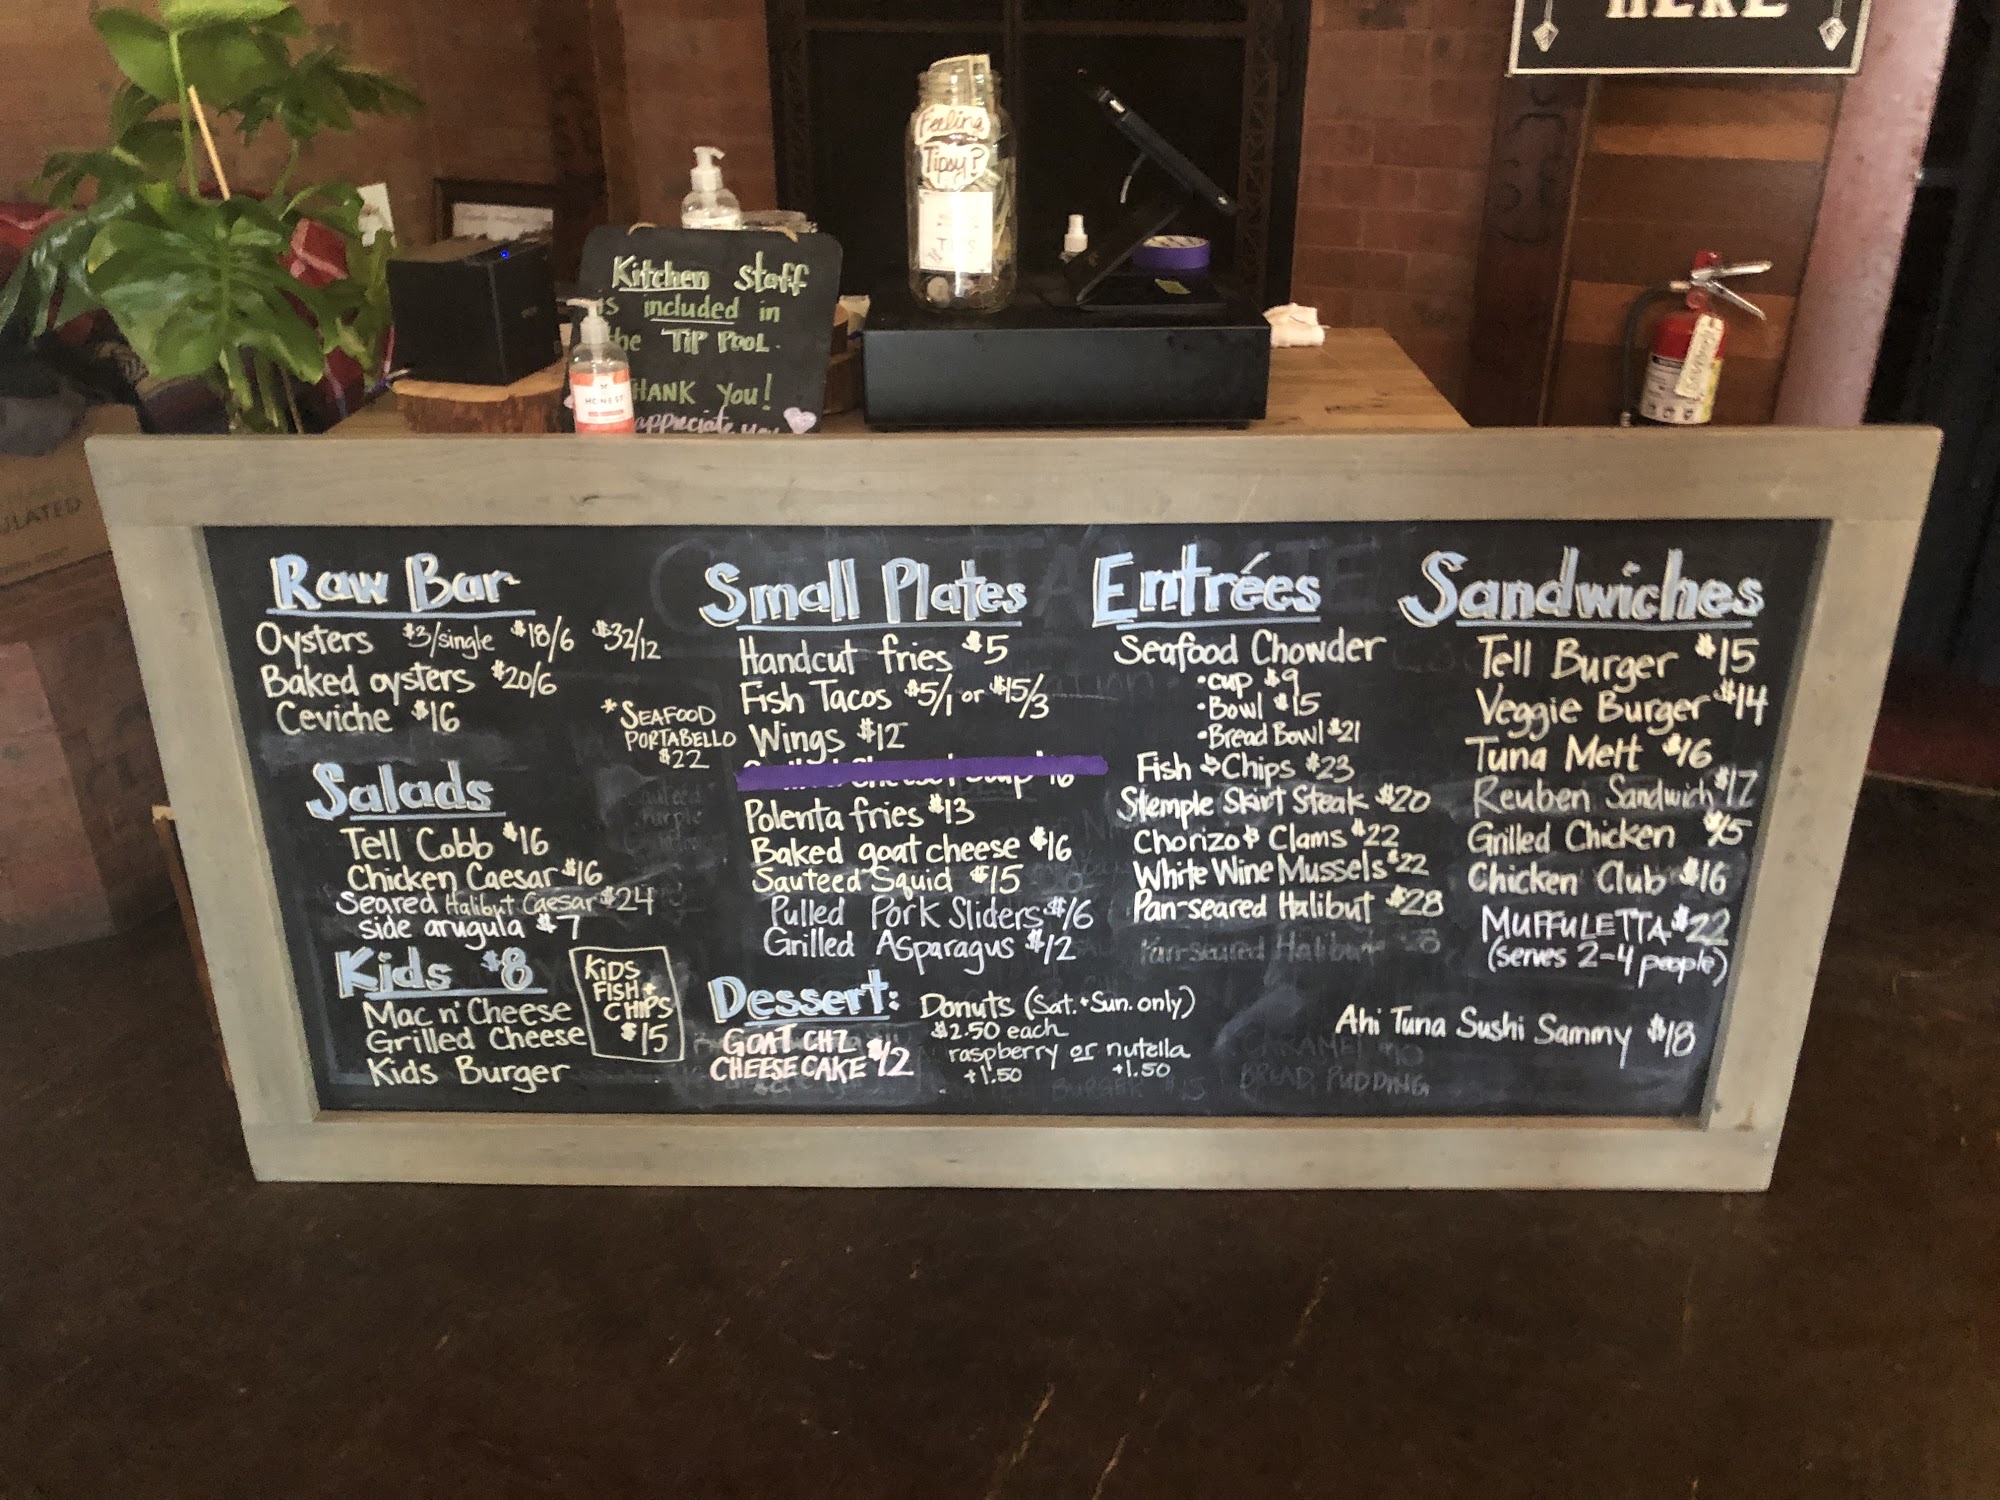 HERE
Feeling
Tipsy?
TIPS
Kitchen staff
is included in
the TIP POOL.
THANK YOU!
appreciate you
HONEST
ULATED
Raw Bar
Oysters $3/single $18/6 $32/12
Baked oysters $20/6
Ceviche $16
*SEAFOOD
PORTABELLO
$22
Salads
Tell Cobb $16
Chicken Caesar $16
Seared Halibut Caesar $24
side arugula $7
Kids $8
Mac n' Cheese
Grilled Cheese
Kids Burger
KIDS
FISH +
CHIPS
$15
Small Plates
Handcut fries $5
Fish Tacos $5/1 or $15/3
Wings $12
Polenta fries $13
Baked goat cheese $16
Sauteed Squid $15
Pulled Pork Sliders $16
Grilled Asparagus $12
Dessert:
GOAT CHZ
CHEESECAKE $12
Donuts (Sat. + Sun. only)
$2.50 each
raspberry or nutella
+1.50 +1.50
Entrées
Seafood Chowder
•cup $9
•Bowl $15
•Bread Bowl $21
Fish & Chips $23
Stemple Skirt Steak $20
Chorizo & Clams $22
White Wine Mussels $22
Pan-seared Halibut $28
Pan-seared Halibut
CARAMEL
BREAD PUDDING
Sandwiches
Tell Burger $15
Veggie Burger $14
Tuna Melt $16
Reuben Sandwich $17
Grilled Chicken $15
Chicken Club $16
MUFFULETTA $22
(serves 2-4 people)
Ahi Tuna Sushi Sammy $18